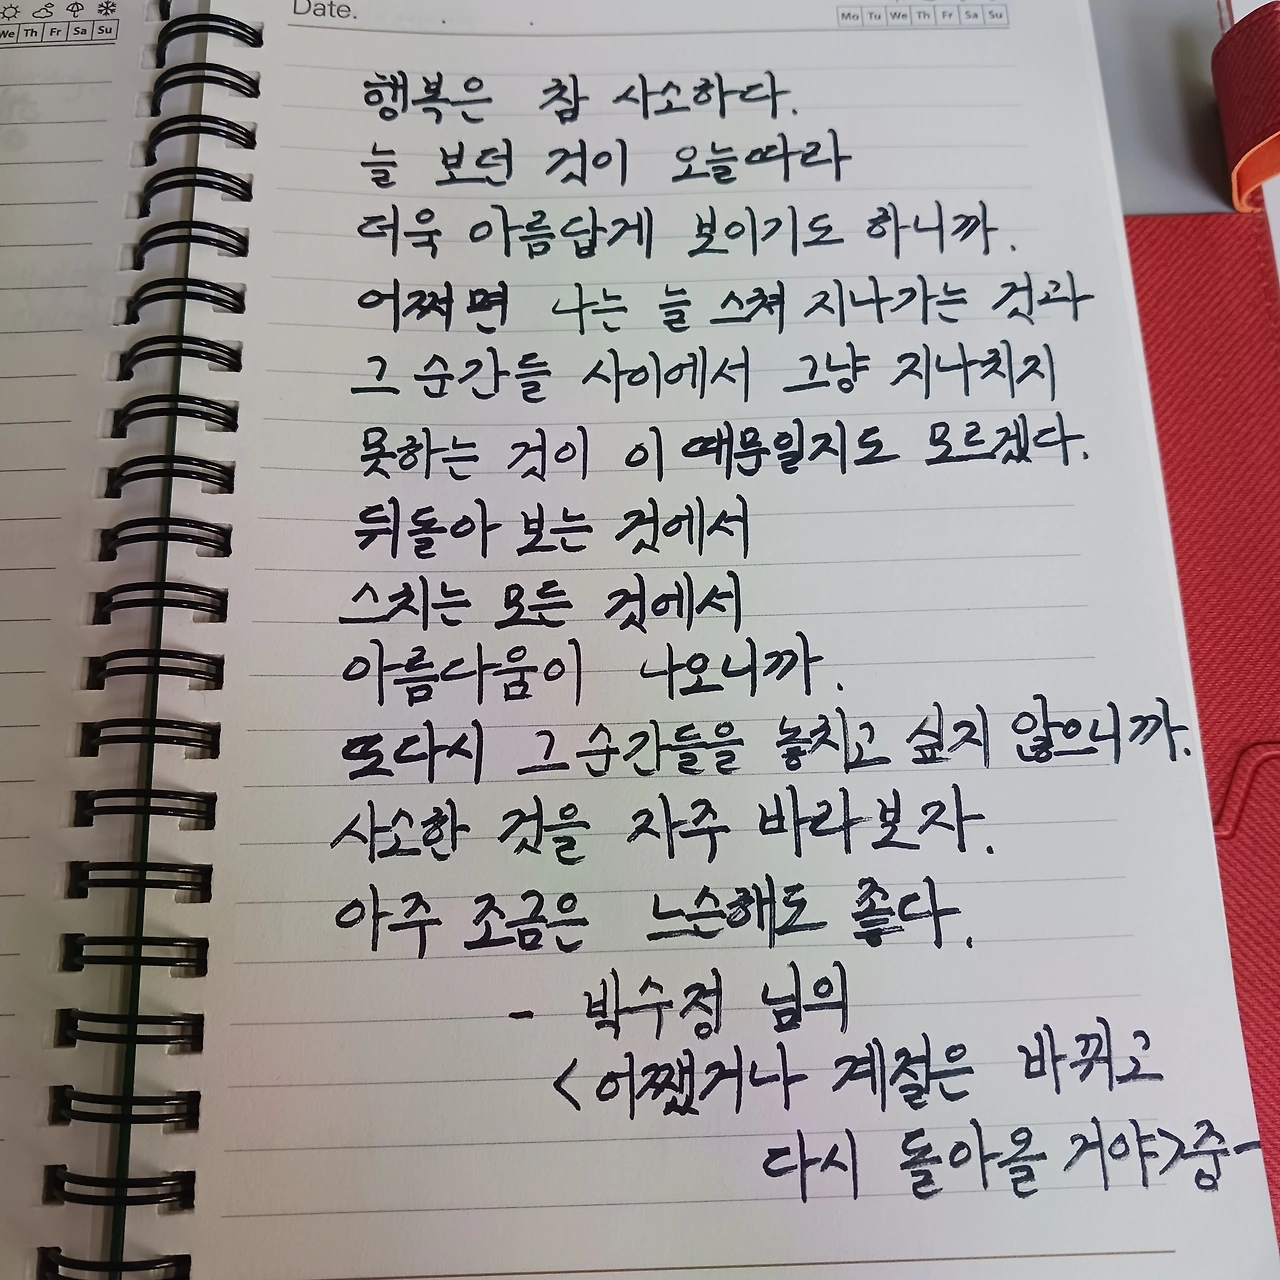 We Th Fr Sa Su
Date.
Mo Tu We Th Fr Sa Su
행복은 참 사소하다.
늘 보던 것이 오늘따라
더욱 아름답게 보이기도 하니까.
어쩌면 나는 늘 스쳐 지나가는 것과
그 순간들 사이에서 그냥 지나치지
못하는 것이 이 때문일지도 모르겠다.
뒤돌아 보는 것에서
스치는 모든 것에서
아름다움이 나오니까.
또다시 그 순간들을 놓치고 싶지 않으니까.
사소한 것을 자주 바라보자.
아주 조금은 느슨해도 좋다.
- 박수정 님의
<어쨌거나 계절은 바뀌고
다시 돌아올 거야>중-